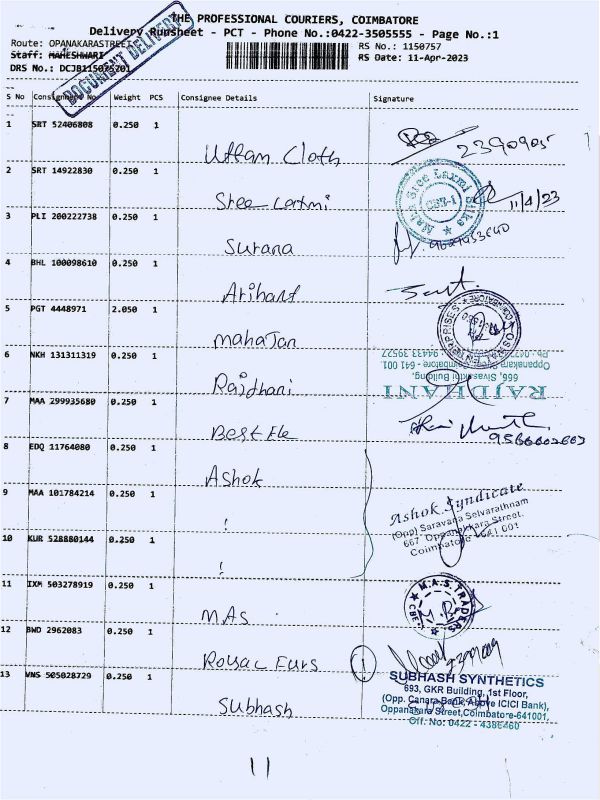 THE PROFESSIONAL COURIERS, COIMBATORE
Delivery Runsheet - PCT - Phone No.:0422-3505555 - Page No.:1
Route: OPANAKARASTREET
RS No.: 1150757
Staff: MAHESHWARI
RS Date: 11-Apr-2023
DRS No.: DCJB115075701
DOCUMENT DELIVERY
S No Consignment No. Weight PCS Consignee Details Signature
1 SRT 52406808 0.250 1 Uttam Cloth 2390905
2 SRT 14922830 0.250 1 Shree Laxmi 11/4/23
3 PLI 200222738 0.250 1 Surana
4 BHL 100098610 0.250 1 Arihant
5 PGT 4448971 2.050 1 mahaJan
6 NKH 131311319 0.250 1 Rajdhani
RAJDHANI
666, Sivasakthi Building,
Oppanakara Street, Coimbatore - 641 001.
7 MAA 299935680 0.250 1 Best Ele
8 EDQ 11764080 0.250 1 Ashok
9 MAA 101784214 0.250 1 !
Ashok Syndicate
(Opp) Saravana Selvarathnam
667, Oppanakkara Street,
Coimbatore - 641 001
10 KUR 528880144 0.250 1 !
11 IXM 503278919 0.250 1 MAs
M.A.S. TRADERS
CBE
12 BWD 2962083 0.250 1
13 VNS 505028729 0.250 1 Subhash
SUBHASH SYNTHETICS
693, GKR Building, 1st Floor,
(Opp. Canara Bank, Above ICICI Bank),
Oppanakara Street, Coimbatore-641001,
Off. No: 0422 - 4386460
11